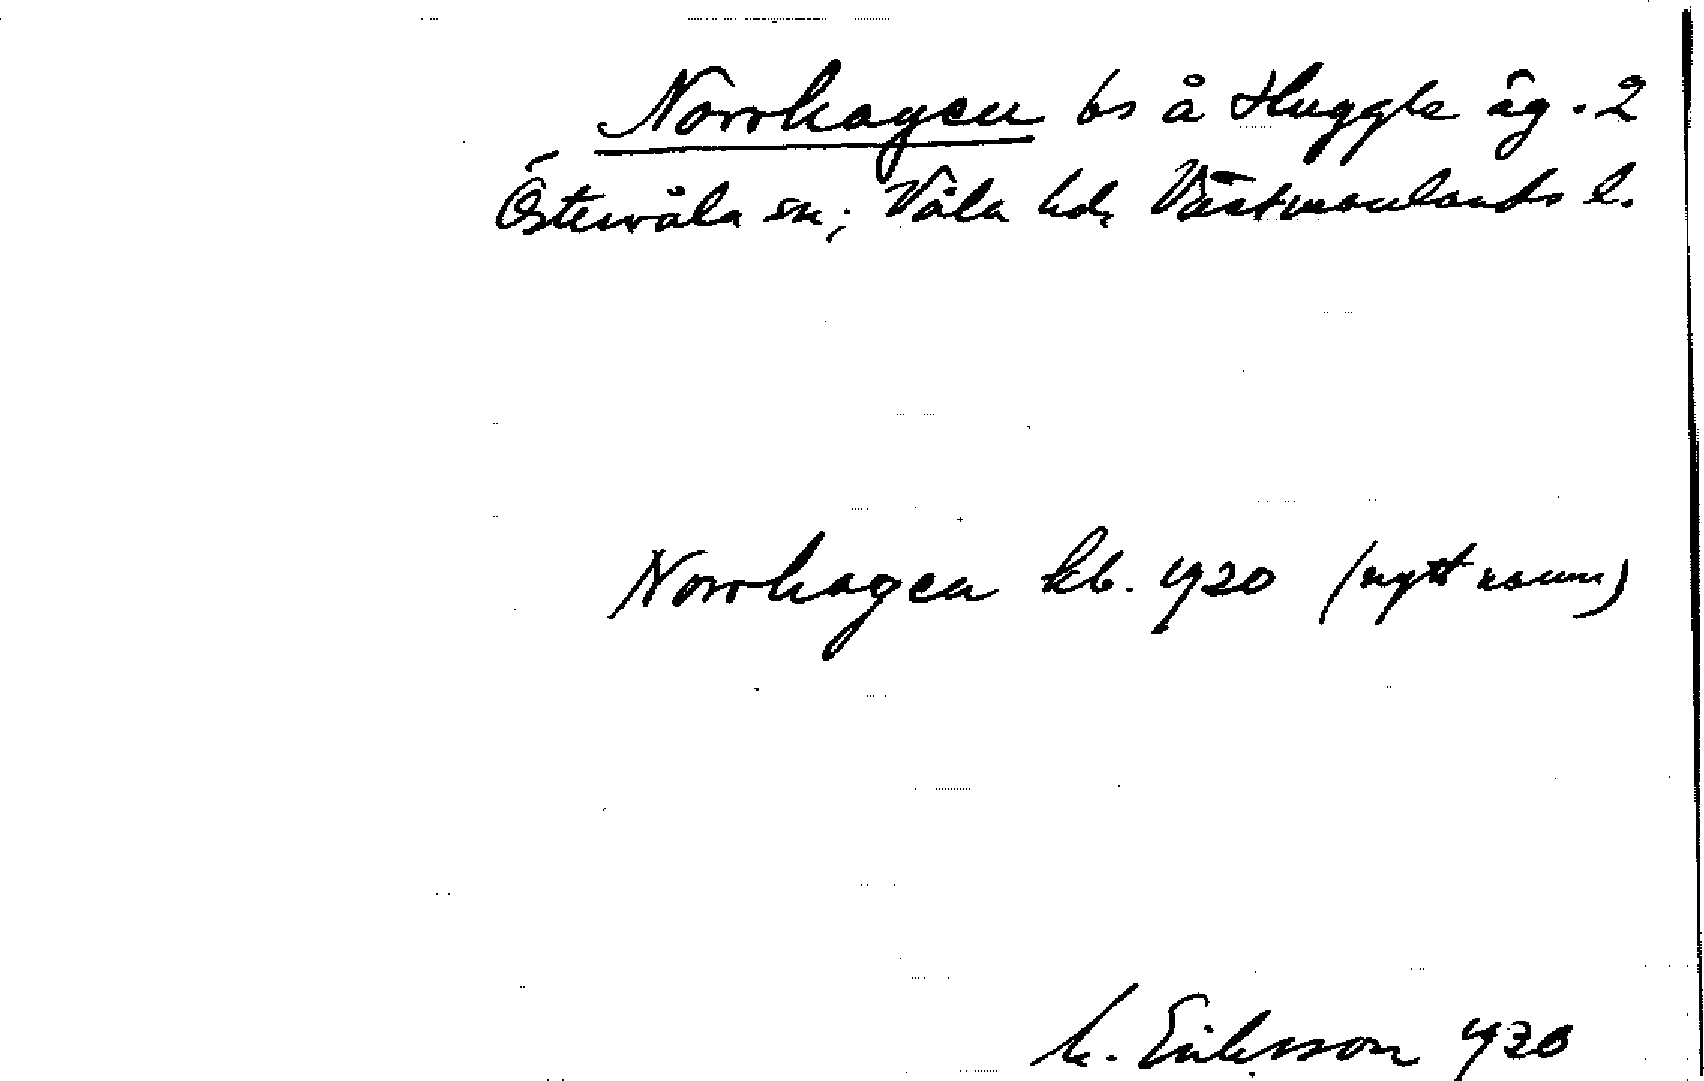 Norrhagen bs å Huggle äg. 2
Östervåla sn; Våla hd, Västmanlands l.
Norrhagen kb. 1920 (nytt namn)
M. Eriksson 1930